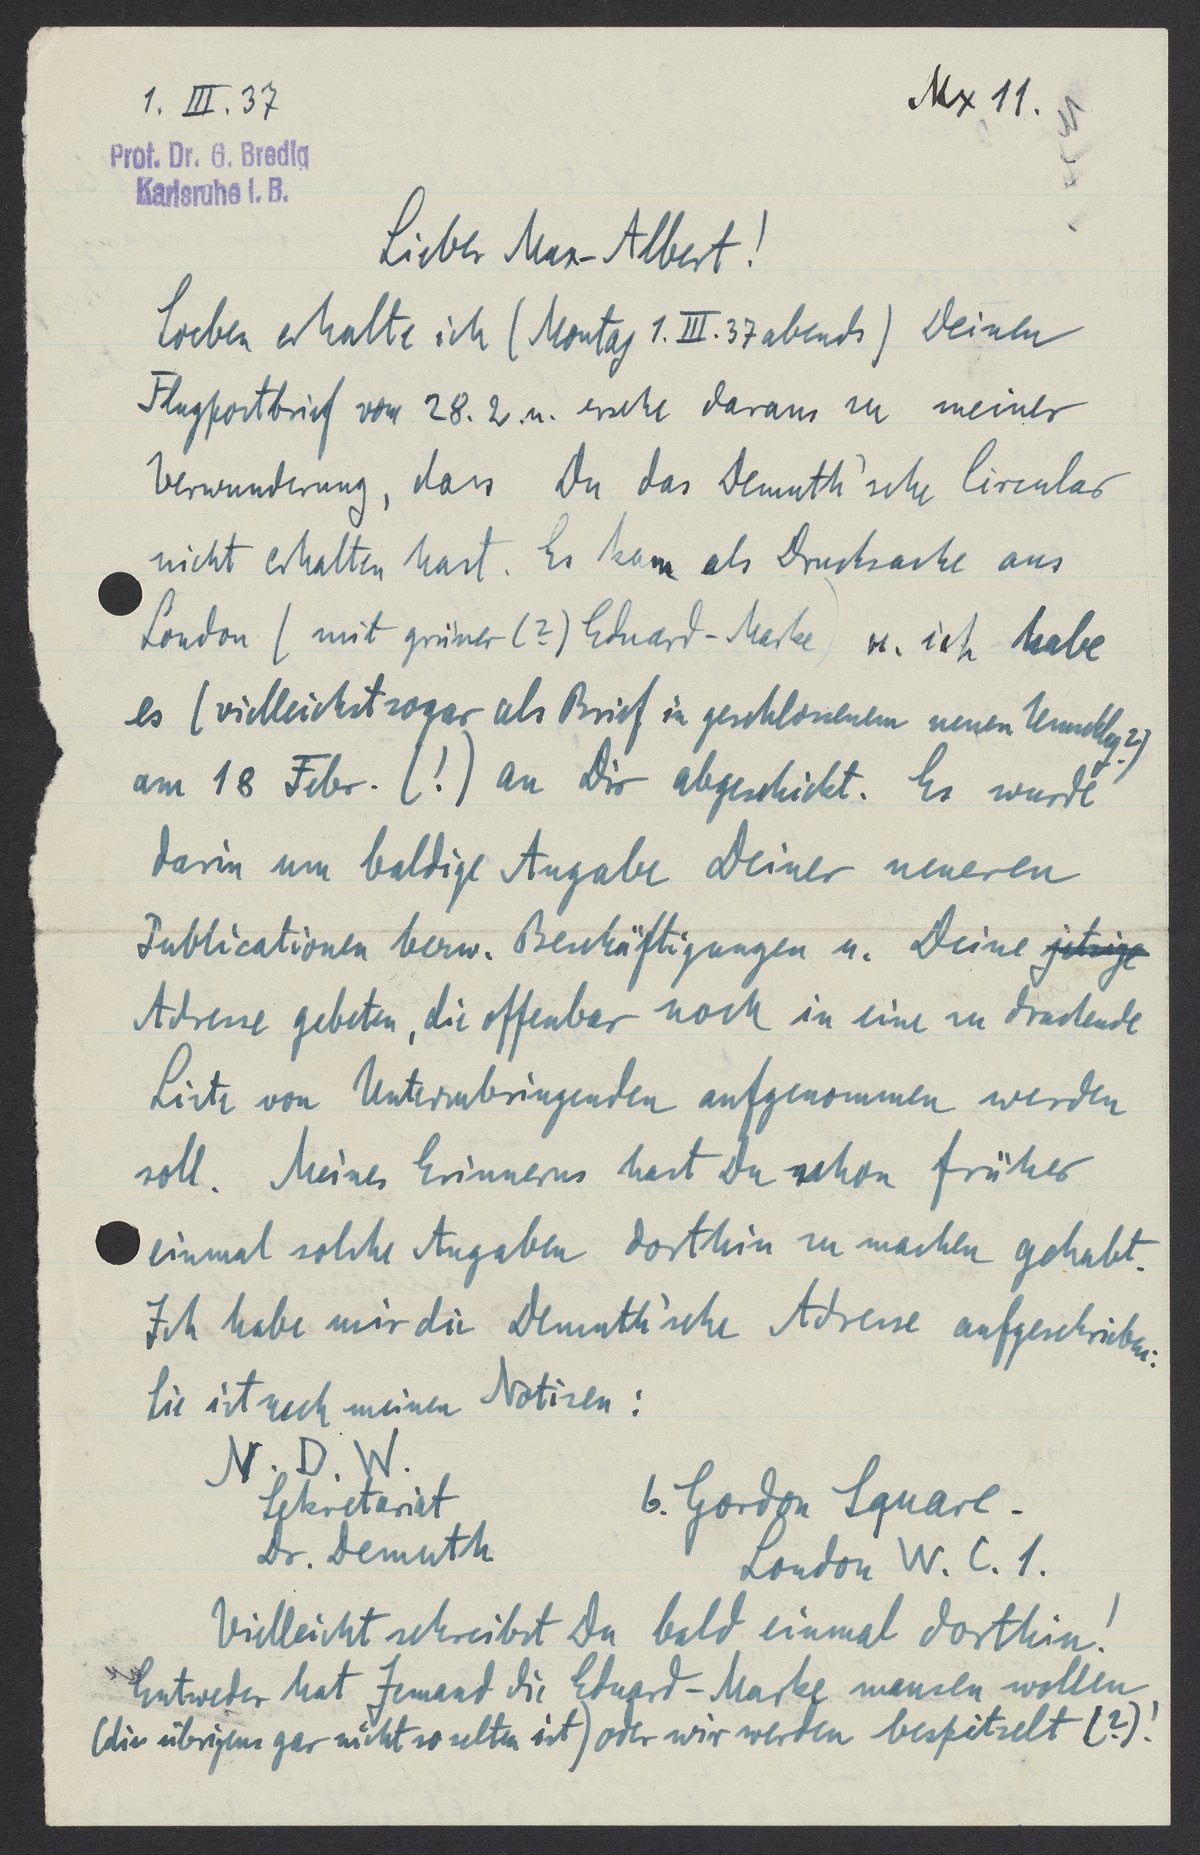 1. III. 37
Mx 11.
Prof. Dr. G. Bredig
Karlsruhe i. B.
Lieber Max-Albert!
Soeben erhalte ich (Montag 1. III. 37 abends) Deinen
Flugpostbrief vom 28. 2. u. ersehe daraus zu meiner
Verwunderung, dass Du das Demuth'sche Circular
nicht erhalten hast. Es kam als Drucksache aus
London (mit grüner (?) Eduard-Marke) u. ich habe
es (vielleicht sogar als Brief in geschlossenem neuen Umschlag?)
am 18 Febr. (!) an Dir abgeschickt. Es wurde
darin um baldige Angabe Deiner neueren
Publicationen bezw. Beschäftigungen u. Deine jetzige
Adresse gebeten, die offenbar noch in eine zu druckende
Liste von Unterzubringenden aufgenommen werden
soll. Meines Erinnerns hast Du schon früher
einmal solche Angaben dorthin zu machen gehabt.
Ich habe mir die Demuth'sche Adresse aufgeschrieben:
Sie ist nach meinen Notizen:
N. D. W.
Sekretariat
Dr. Demuth
6. Gordon Square -
London W. C. 1.
Vielleicht schreibst Du bald einmal dorthin!
Entweder hat Jemand die Eduard-Marke mausen wollen
(die übrigens gar nicht so selten ist) oder wir werden bespitzelt (?)!